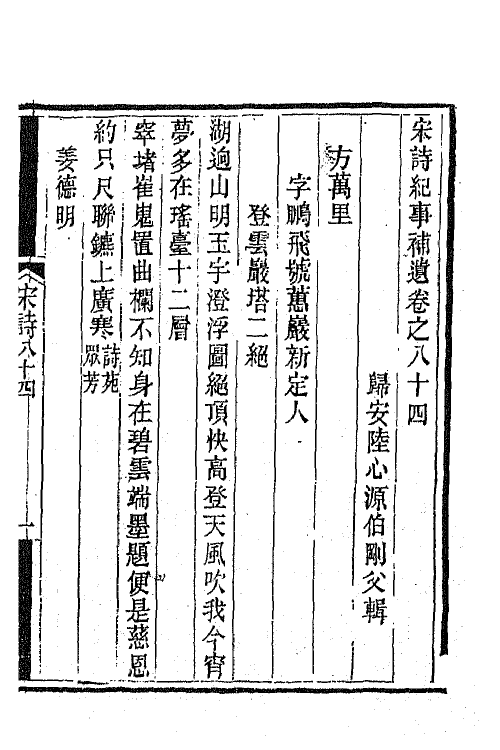 宋詩紀事補遺卷之八十四
歸安陸心源伯剛父輯
方萬里
字鵬飛號蕙巖新定人
登雲巖塔二絕
湖逈山明玉宇澄浮圖絕頂快高登天風吹我今宵
夢多在瑤臺十二層
窣堵崔嵬置曲欄不知身在碧雲端墨題便是慈恩
約只尺聯鑣上廣寒詩苑
眾芳
姜德明
宋詩八十四
一